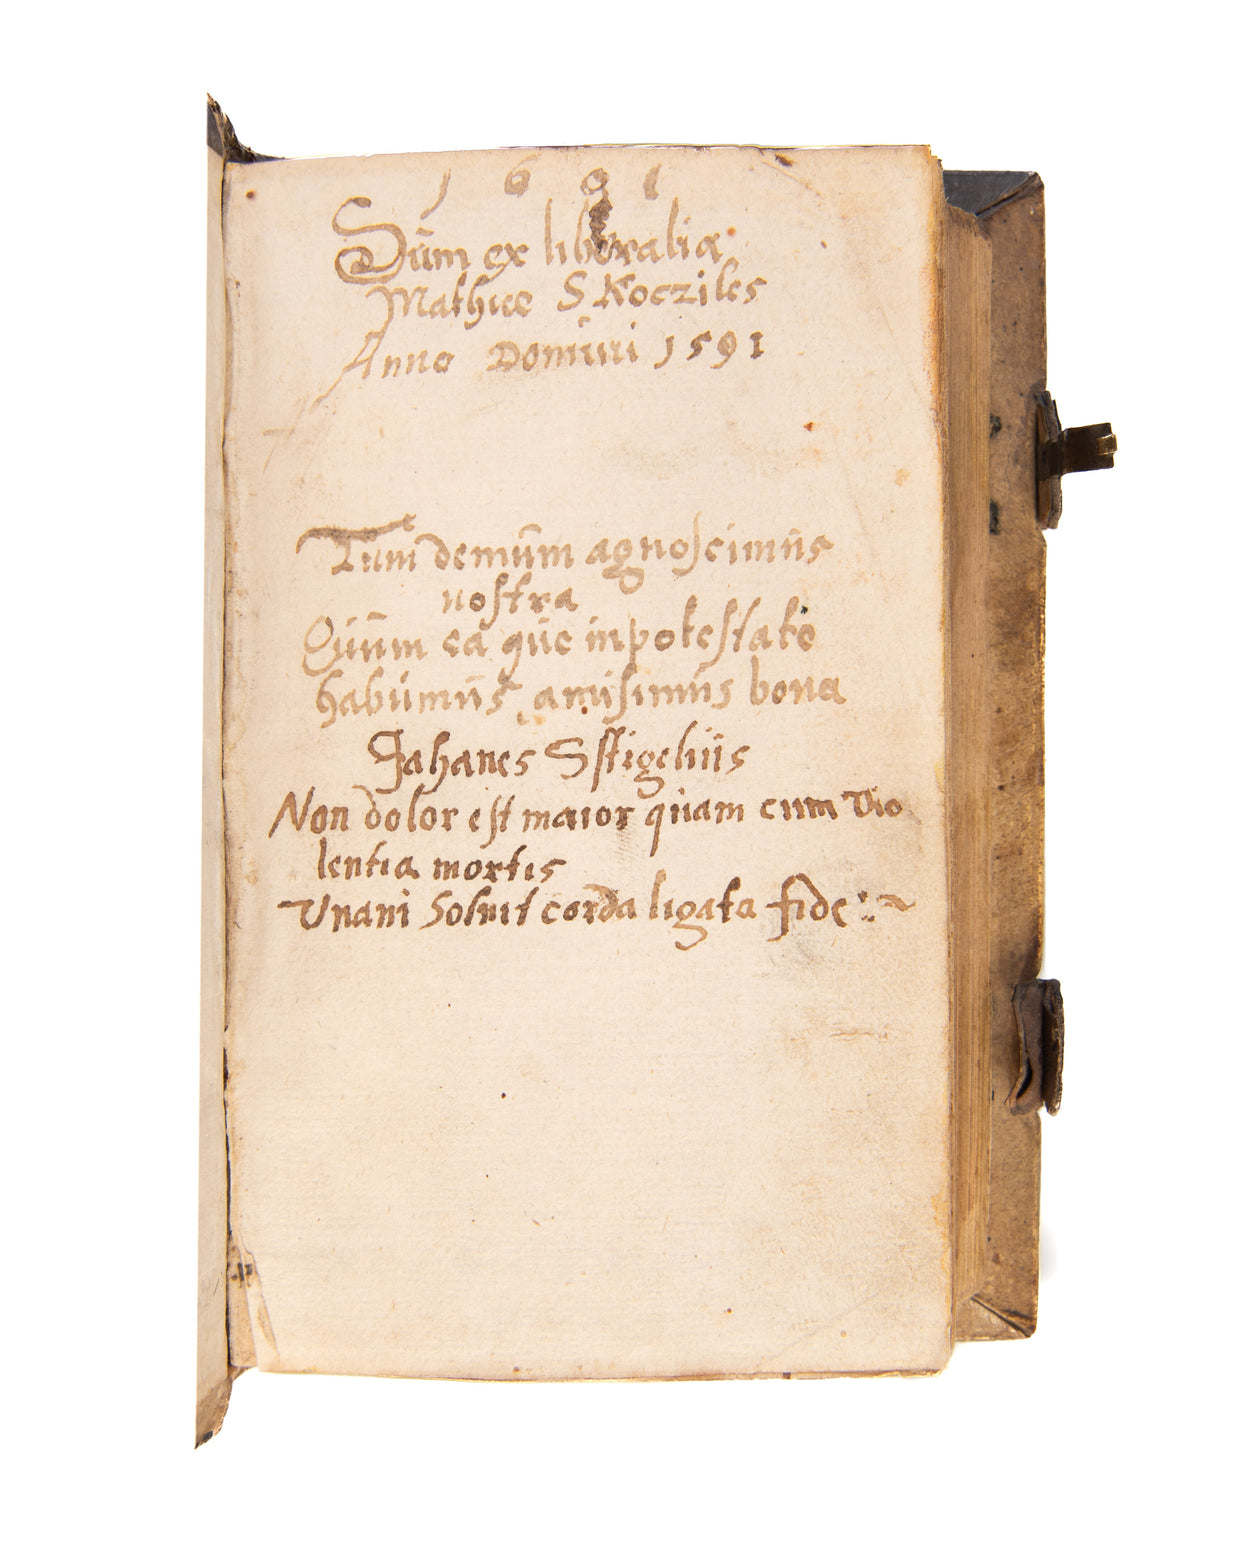 1 6 9 1
Sum ex liberalia
Mathiæ S Kocziles
Anno Domini 1591
Tum demum agnoscimus
nostra
Quum ea que in potestate
habuimus amisimus bona
Jahanes Sstigelius
Non dolor est maior quam cum vio
lentia mortis
Unani Solvit corda ligata fide